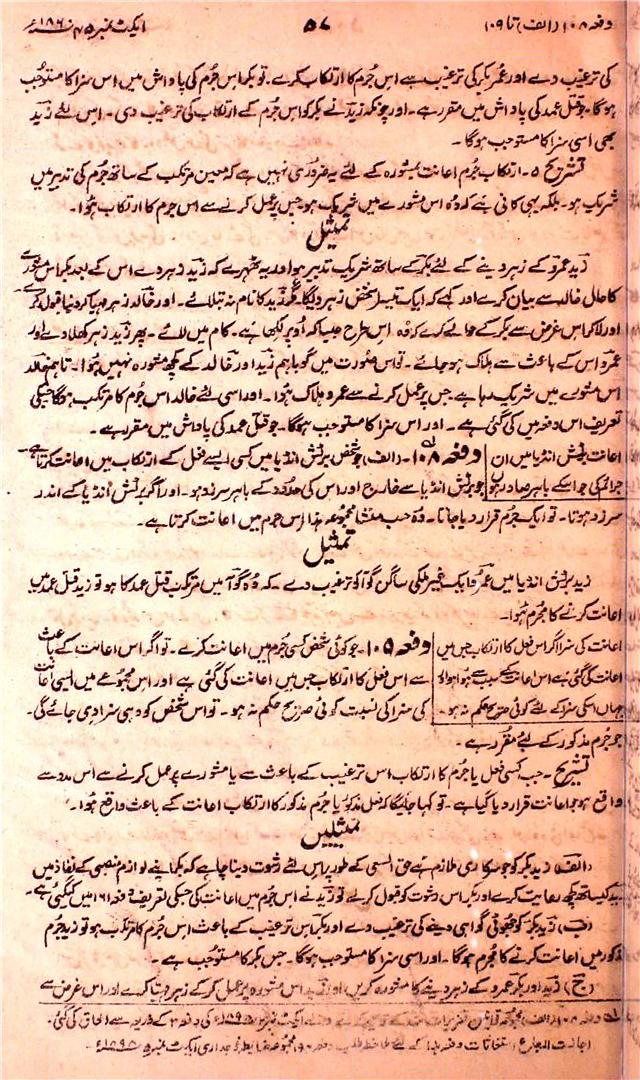 دفعہ ۱۰۸ (الف) تا ۱۰۹
۵۷
ایکٹ نمبر ۴۵ ۱۸۶۰ء
کی ترغیب دے اور عمر بکر کی ترغیب سے اس جُرم کا ارتکاب کرے۔ تو بکر اس جُرم کی پاداش میں اس سزا کا مستوجب
ہوگا۔ جو قتل عمد کی پاداش میں مقرر ہے۔ اور چونکہ زید نے بکر کو اس جُرم کے ارتکاب کی ترغیب دی۔ اس لئے زید
بھی اسی سزا کا مستوجب ہوگا۔
تشریح ۵۔ ارتکاب جُرم اعانت بمشورہ کے لئے یہ ضروری نہیں ہے کہ معین مرتکب کے ساتھ جُرم کی تدبیر میں
شریک ہو۔ بلکہ یہی کافی ہے کہ وُہ اس مشورے میں شریک ہو جس پر عمل کرنے سے اس جرم کا ارتکاب ہُوا۔
تمثیل
زید عمرو کے زہر دینے کے لئے بکر کے ساتھ شریک تدبیر ہو اور یہ ٹھہرے کہ زید زہر دے اس کے بعد بکر اس مشورے
کا حال خالد سے بیان کرے اور کہے کہ ایک تیسرا شخص زہر دیگا۔ مگر زید کا نام نہ بتلائے۔ اور خالد زہر مہیا کر دینا قبول کرے۔
اور لا کر اس غرض سے بکر کے حوالے کرے کہ وُہ اس طرح جیسا کہ اُوپر لکھا ہے۔ کام میں لائے۔ پھر زید زہر کھلا دے اور
عمرو اس کے باعث سے ہلاک ہو جائے۔ تو اس صورت میں گو باہم زید اور خالد کے کچھ مشورہ نہیں ہُوا۔ تاہم خالد
اس مشورے میں شریک رہا ہے جس پر عمل کرنے سے عمرو ہلاک ہُوا۔ اور اسی لئے خالد اس جُرم کا مرتکب ہوگا جسکی
تعریف اس دفعہ میں کی گئی ہے۔ اور اس سزا کا مستوجب ہوگا۔ جو قتل عمد کی پاداش میں مقرر ہے۔
اعانت برٹش انڈیا میں ان
جرائم کی جو اسکے باہر صادر ہوں
دفعہ ۱۰۸۔ (الف) جو شخص برٹش انڈیا میں کسی ایسے فعل کے ارتکاب میں اعانت کرتا ہے۔
جو برٹش انڈیا سے خارج اور اس کی حدود کے باہر سرزد ہو۔ اور اگر برٹش انڈیا کے اندر
سرزد ہوتا۔ تو ایک جُرم قرار دیا جاتا۔ وُہ حسب منشا مجموعہ ہذا اس جرم میں اعانت کرتا ہے۔
تمثیل
زید برٹش انڈیا میں عمرو ایک غیر ملکی ساکن گوآ کو ترغیب دے۔ کہ وُہ گوآ میں مرتکب قتل عمد کا ہو تو زید قتل عمد میں
اعانت کرنے کا مجرم ہُوا۔
اعانت کی سزا اگر اس فعل کا ارتکاب جس میں
اعانت کی گئی ہے اس اعانت کے سبب سے ہوا ہو اور
جہاں اسکی سزا کے لئے کوئی صریح حکم نہ ہو۔
دفعہ ۱۰۹۔ جو کوئی شخص کسی جُرم میں اعانت کرے۔ تو اگر اس اعانت کے باعث
سے اس فعل کا ارتکاب جس میں اعانت کی گئی ہے اور اس مجموعے میں ایسی اعانت
کی سزا کی نسبت کوئی صریح حکم نہ ہو۔ تو اس شخص کو وہی سزا دی جائے گی۔
جو جُرم مذکور کے لئے مقرر ہے۔
تشریح۔ جب کسی فعل یا جُرم کا ارتکاب اس ترغیب کے باعث سے یا مشورے پر عمل کرنے سے اس مدد سے
واقع ہو جو اعانت قرار دیا گیا ہے۔ تو کہا جائیگا کہ فعل مذکور یا جُرم مذکور کا ارتکاب اعانت کے باعث واقع ہُوا۔
تمثیلیں
(الف) زید بکر کو جو سرکاری ملازم ہے حق السعی کے طور پر اس لئے رشوت دینا چاہے کہ بکر اپنے لوازم منصبی کے نفاذ میں
زید کیساتھ کچھ رعایت کرے اور بکر اس رشوت کو قبول کرلے تو زید نے اس جرم میں اعانت کی جسکی تعریف دفعہ ۱۶۱ میں کیگئی ہے۔
(ب) زید بکر کو جھوٹی گواہی دینے کی ترغیب دے اور بکر اس ترغیب کے باعث اس جُرم کا مرتکب ہو تو زید جُرم
مذکور میں اعانت کرنے کا مجرم ہوگا۔ اور اسی سزا کا مستوجب ہوگا۔ جس بکر کا مستوجب ہے۔
(ج) زید اور بکر عمرو کے زہر دینے کا مشورہ کریں اور زید اس مشورہ پر عمل کر کے زہر مہیا کرے اور اس غرض سے
دفعہ ۱۰۸ (الف) مجموعہ ایکٹ نمبر ۱۸۹۸ء کی دفعہ ۳ کے ذریعہ سے الحاق کی گئی۔
دفعہ ہذا کے لئے ملاحظہ طلب دفعہ مجموعہ ضابطہ فوجداری ایکٹ نمبر ۵ ۱۸۹۸ء۔